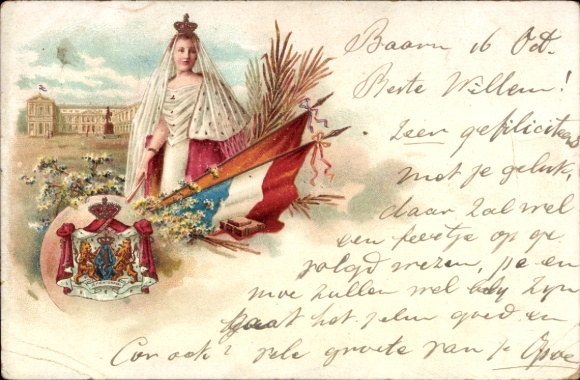 Baarn 16 Oct.
Beste Willem!
Zeer gefiliciteerd
met je geluk,
daar zal wel
een feestje op ge
volgd wezen, je en
moe zullen wel blij zijn
Gaat het jelui goed en
Cor ook? vele groete van je